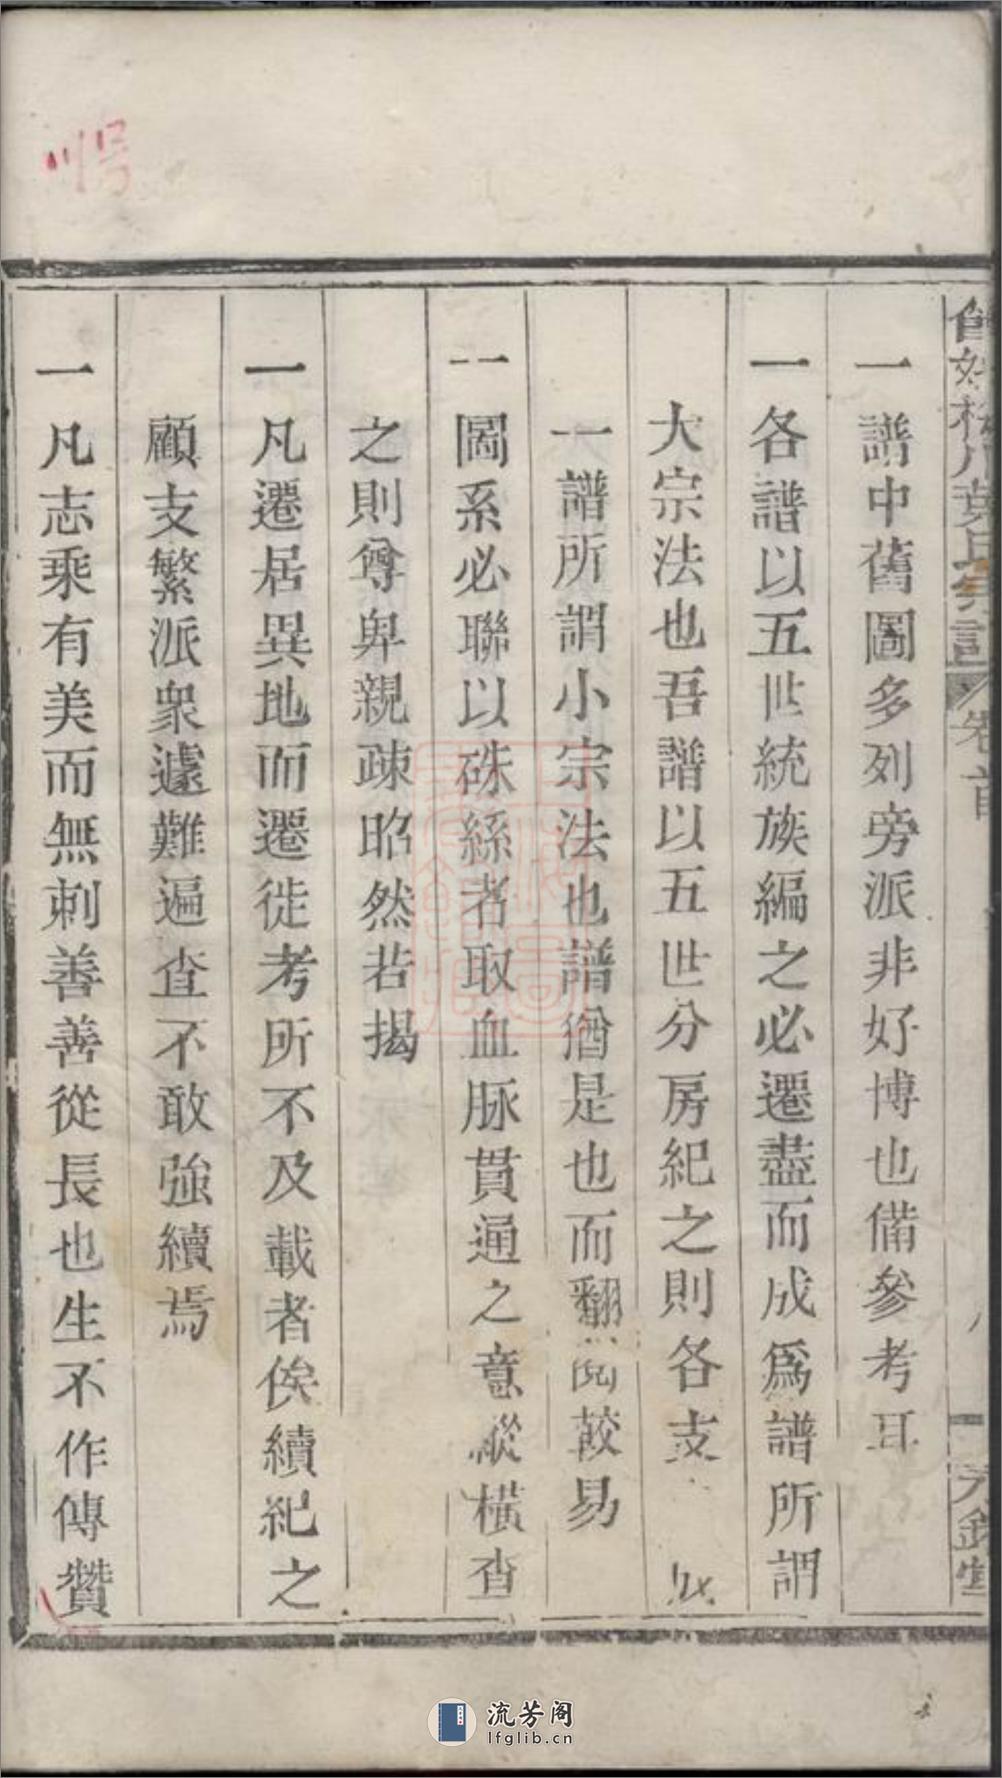 宗譜 卷首
一譜中舊圖多列旁派非好博也備參考耳
一各譜以五世統族編之必遷盡而成爲譜所謂
大宗法也吾譜以五世分房紀之則各支
一譜所謂小宗法也譜猶是也而翻閱較易
一圖系必聯以硃絲者取血脉貫通之意縱橫查
之則尊卑親疎昭然若揭
一凡遷居異地而遷徙考所不及載者俟續紀之
顧支繁派衆遽難遍查不敢強續焉
一凡志乘有美而無刺善善從長也生不作傳贊
流芳阁
lfglib.cn